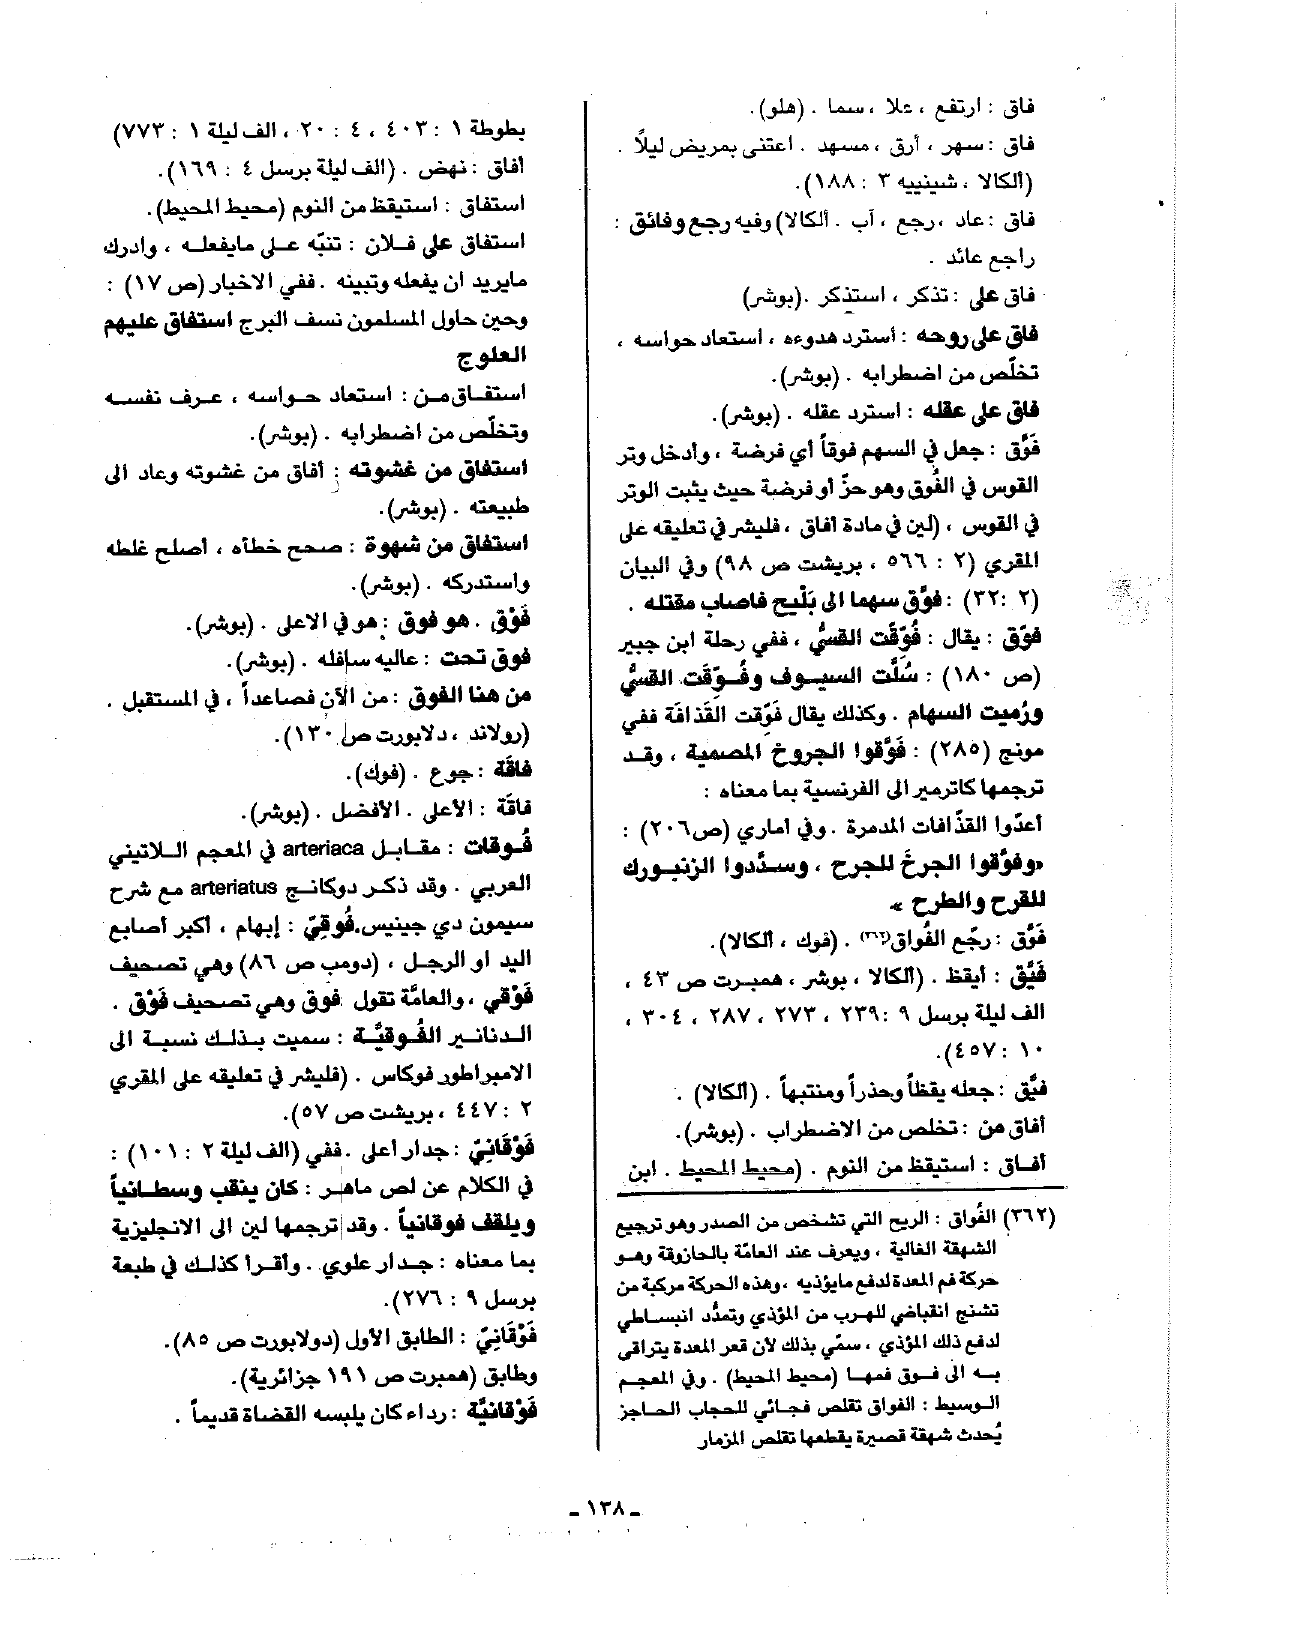 فاق : ارتفع ، علا ، سما . (هلو).
فاق : سهر ، أرق ، مسهد . اعتنى بمريض ليلاً .
(ألكالا ، شينييه ٣ : ١٨٨).
فاق : عاد ، رجع ، آب . ألكالا) وفيه رجع وفائق :
راجع عائد .
فاق على : تذكر ، استذكر . (بوشر)
فاق على روحه : استرد هدوءه ، استعاد حواسه ،
تخلّص من اضطرابه . (بوشر).
فاق على عقله : استرد عقله . (بوشر).
فَوَّق : جعل في السهم فوقاً أي فرضة ، وأدخل وتر
القوس في الفُوق وهو حزّ أو فرضة حيث يثبت الوتر
في القوس ، (لين في مادة أفاق ، فليشر في تعليقه على
المقري (٢ : ٥٦٦ ، بريشت ص ٩٨) وفي البيان
(٢ : ٣٢) : فوَّق سهما الى بَلْيح فاصاب مقتله .
فوّق : يقال : فُوِّقَت القسيُّ ، ففي رحلة ابن جبير
(ص ١٨٠) : سُلَّت السيوف وفُوِّقَت القسيُّ
ورُميت السهام . وكذلك يقال فَوّقت القَذافَة ففي
مونج (٢٨٥) : فَوَّقوا الجروخ المصمية ، وقد
ترجمها كاترمير الى الفرنسية بما معناه :
أعدّوا القذّافات المدمرة . وفي أماري (ص ٢٠٦) :
«وفوَّقوا الجرخَ للجرح ، وسدَّدوا الزنبورك
للقرح والطرح »
فَوَّق : رجّع الفُواق(٣٦٢) . (فوك ، ألكالا).
فَيَّق : أيقظ . (ألكالا ، بوشر ، همبرت ص ٤٣ ،
الف ليلة برسل ٩ : ٢٣٩ ، ٢٧٣ ، ٢٨٧ ، ٣٠٤ ،
١٠ : ٤٥٧).
فيَّق : جعله يقظاً وحذراً ومنتبهاً . (ألكالا) .
أفاق من : تخلص من الاضطراب . (بوشر).
أفاق : استيقظ من النوم . (محيط المحيط . ابن
(٣٦٢) الفُواق : الريح التي تشخص من الصدر وهو ترجيع
الشهقة الغالية ، ويعرف عند العامّة بالحازوقة وهو
حركة فم المعدة لدفع مايؤذيه ، وهذه الحركة مركبة من
تشنج انقباضي للهرب من المؤذي وتمدّد انبساطي
لدفع ذلك المؤذي ، سمّي بذلك لأن قعر المعدة يتراقى
به الى فوق فمها (محيط المحيط) . وفي المعجم
الوسيط : الفواق تقلص فجائي للحجاب الحاجز
يُحدث شهقة قصيرة يقطعها تقلص المزمار
بطوطة ١ : ٤٠٣ ، ٤ : ٢٠ ، الف ليلة ١ : ٧٧٣)
أفاق : نهض . (الف ليلة برسل ٤ : ١٦٩).
استفاق : استيقظ من النوم (محيط المحيط).
استفاق على فلان : تنبّه على مايفعله ، وادرك
مايريد ان يفعله وتبينه . ففي الاخبار (ص ١٧) :
وحين حاول المسلمون نسف البرج استفاق عليهم
العلوج
استفاق من : استعاد حواسه ، عرف نفسه
وتخلّص من اضطرابه . (بوشر).
استفاق من غشوته : أفاق من غشوته وعاد الى
طبيعته . (بوشر).
استفاق من شهوة : صحح خطأه ، أصلح غلطه
واستدركه . (بوشر).
فَوْق . هو فوق : هو في الاعلى . (بوشر).
فوق تحت : عاليه سافله . (بوشر).
من هنا الفوق : من الآن فصاعداً ، في المستقبل .
(رولاند ، دلابورت ص ١٣٠).
فاقَة : جوع . (فوك).
فاقَة : الأعلى . الأفضل . (بوشر).
فُوقات : مقابل arteriaca في المعجم اللاتيني
العربي . وقد ذكر دوكانج arteriatus مع شرح
سيمون دي جينيس.فُوقِيّ : إبهام ، أكبر أصابع
اليد او الرجل ، (دومب ص ٨٦) وهي تصحيف
فَوْقي ، والعامَّة تقول فوق وهي تصحيف فَوْق .
الدنانير الفُوقيَّة : سميت بذلك نسبة الى
الامبراطور فوكاس . (فليشر في تعليقه على المقري
٢ : ٤٤٧ ، بريشت ص ٥٧).
فَوْقَانِيّ : جدار أعلى . ففي (الف ليلة ٢ : ١٠١) :
في الكلام عن لص ماهر : كان ينقب وسطانياً
ويلقف فوقانياً . وقد ترجمها لين الى الانجليزية
بما معناه : جدار علوي . وأقرأ كذلك في طبعة
برسل ٩ : ٢٧٦).
فَوْقَانِيّ : الطابق الأول (دولابورت ص ٨٥).
وطابق (همبرت ص ١٩١ جزائرية).
فَوْقَانيَّة : رداء كان يلبسه القضاة قديماً .
ـ ١٣٨ ـ